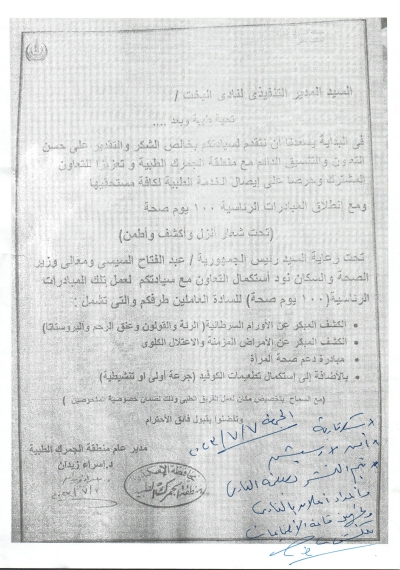 السيد المدير التنفيذى لنادى اليخت /
تحية طيبة وبعد ....
فى البداية يسعدنا ان نتقدم لسيادتكم بخالص الشكر والتقدير على حسن
التعاون والتنسيق الدائم مع منطقة الجمرك الطبية و تعزيزا للتعاون
المشترك وحرصا على إيصال الخدمة الطبية لكافة مستحقيها
ومع إنطلاق المبادرات الرئاسية ١٠٠ يوم صحة
(تحت شعار أنزل وأكشف وأطمن)
تحت رعاية السيد رئيس الجمهورية / عبد الفتاح السيسى ومعالى وزير
الصحة والسكان نود أستكمال التعاون مع سيادتكم لعمل تلك المبادرات
الرئاسية (١٠٠ يوم صحة) للسادة العاملين طرفكم والتى تشمل :
• الكشف المبكر عن الأورام السرطانية( الرئة والقولون وعنق الرحم والبروستاتا)
• الكشف المبكر عن الأمراض المزمنة والاعتلال الكلوى
• مبادرة دعم صحة المرأة
• بالأضافة إلى إستكمال تطعيمات الكوفيد (جرعة أولى او تنشيطية)
(مع السماح بتخصيص مكان لعمل الفريق الطبى وذلك لضمان خصوصية المفحوصين )
وتفضلوا بقبول فائق الأحترام
الجمعة ٢٠٢٣/٧/٧
مدير عام منطقة الجمرك الطبية
د.إسراء زيدان
محافظة الإسكندرية
منطقة الجمرك الطبية